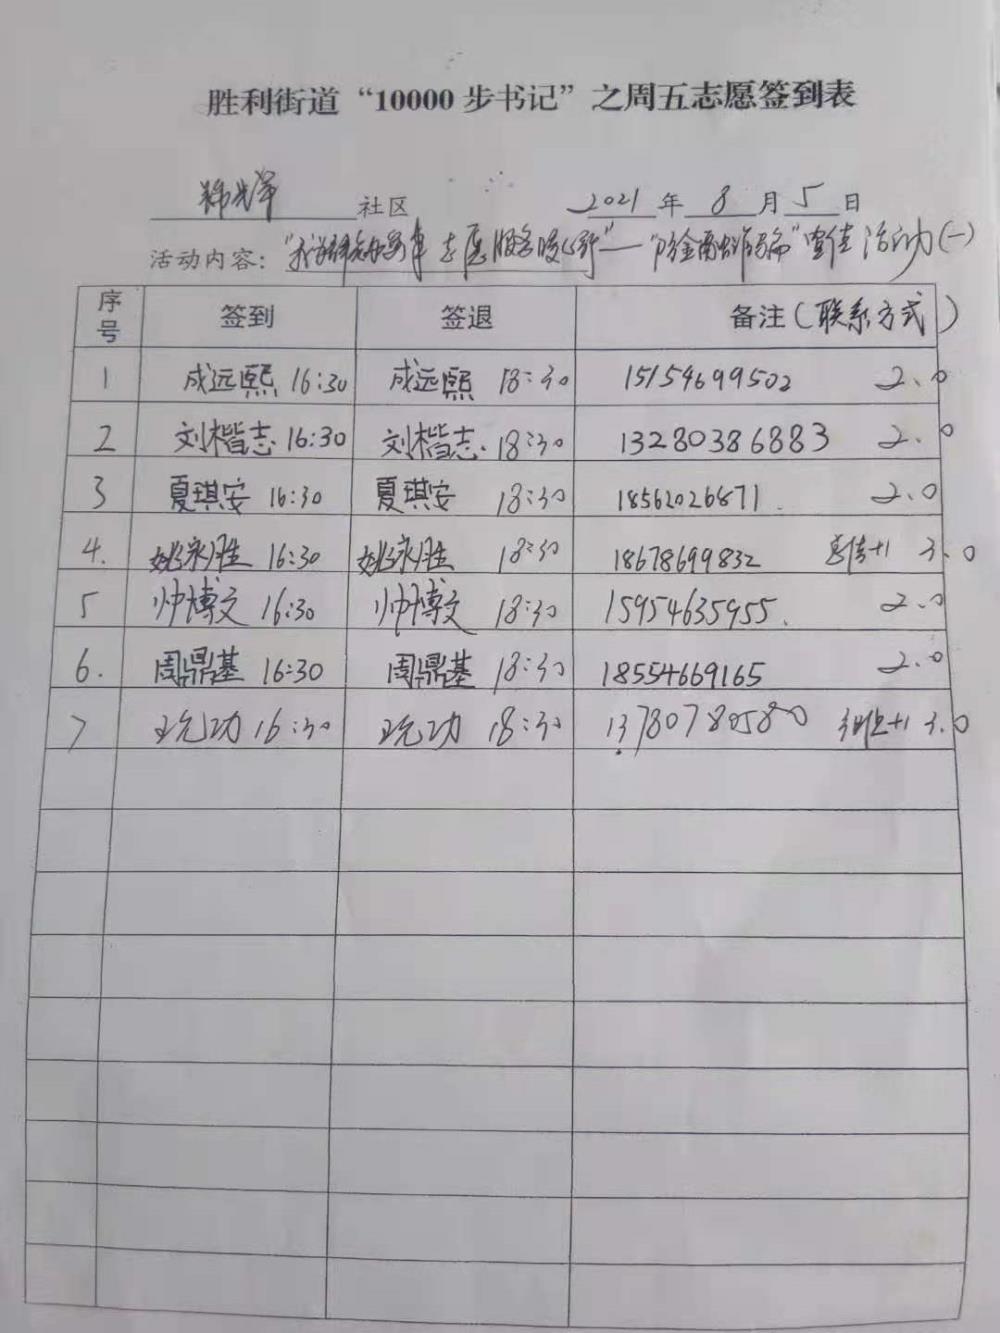 胜利街道“10000步书记”之周五志愿签到表
社区 2021年8月5日
活动内容：“我为群众办实事 志愿服务暖心行”—“防金融诈骗”宣传活动(一)
序号 签到 签退 备注(联系方式)
1 成远熙 16:30 成远熙 18:30 15154699502 2.0
2 刘楷志 16:30 刘楷志 18:30 13280386883 2.0
3 夏琪安 16:30 夏琪安 18:30 18562026871 2.0
4. 姚永胜 16:30 姚永胜 18:30 18678699832 宣传+1 3.0
5 帅博文 16:30 帅博文 18:30 15954635955 2.0
6. 周鼎基 16:30 周鼎基 18:30 18554669165 2.0
7 16:30 18:30 13780780580 +1 3.0